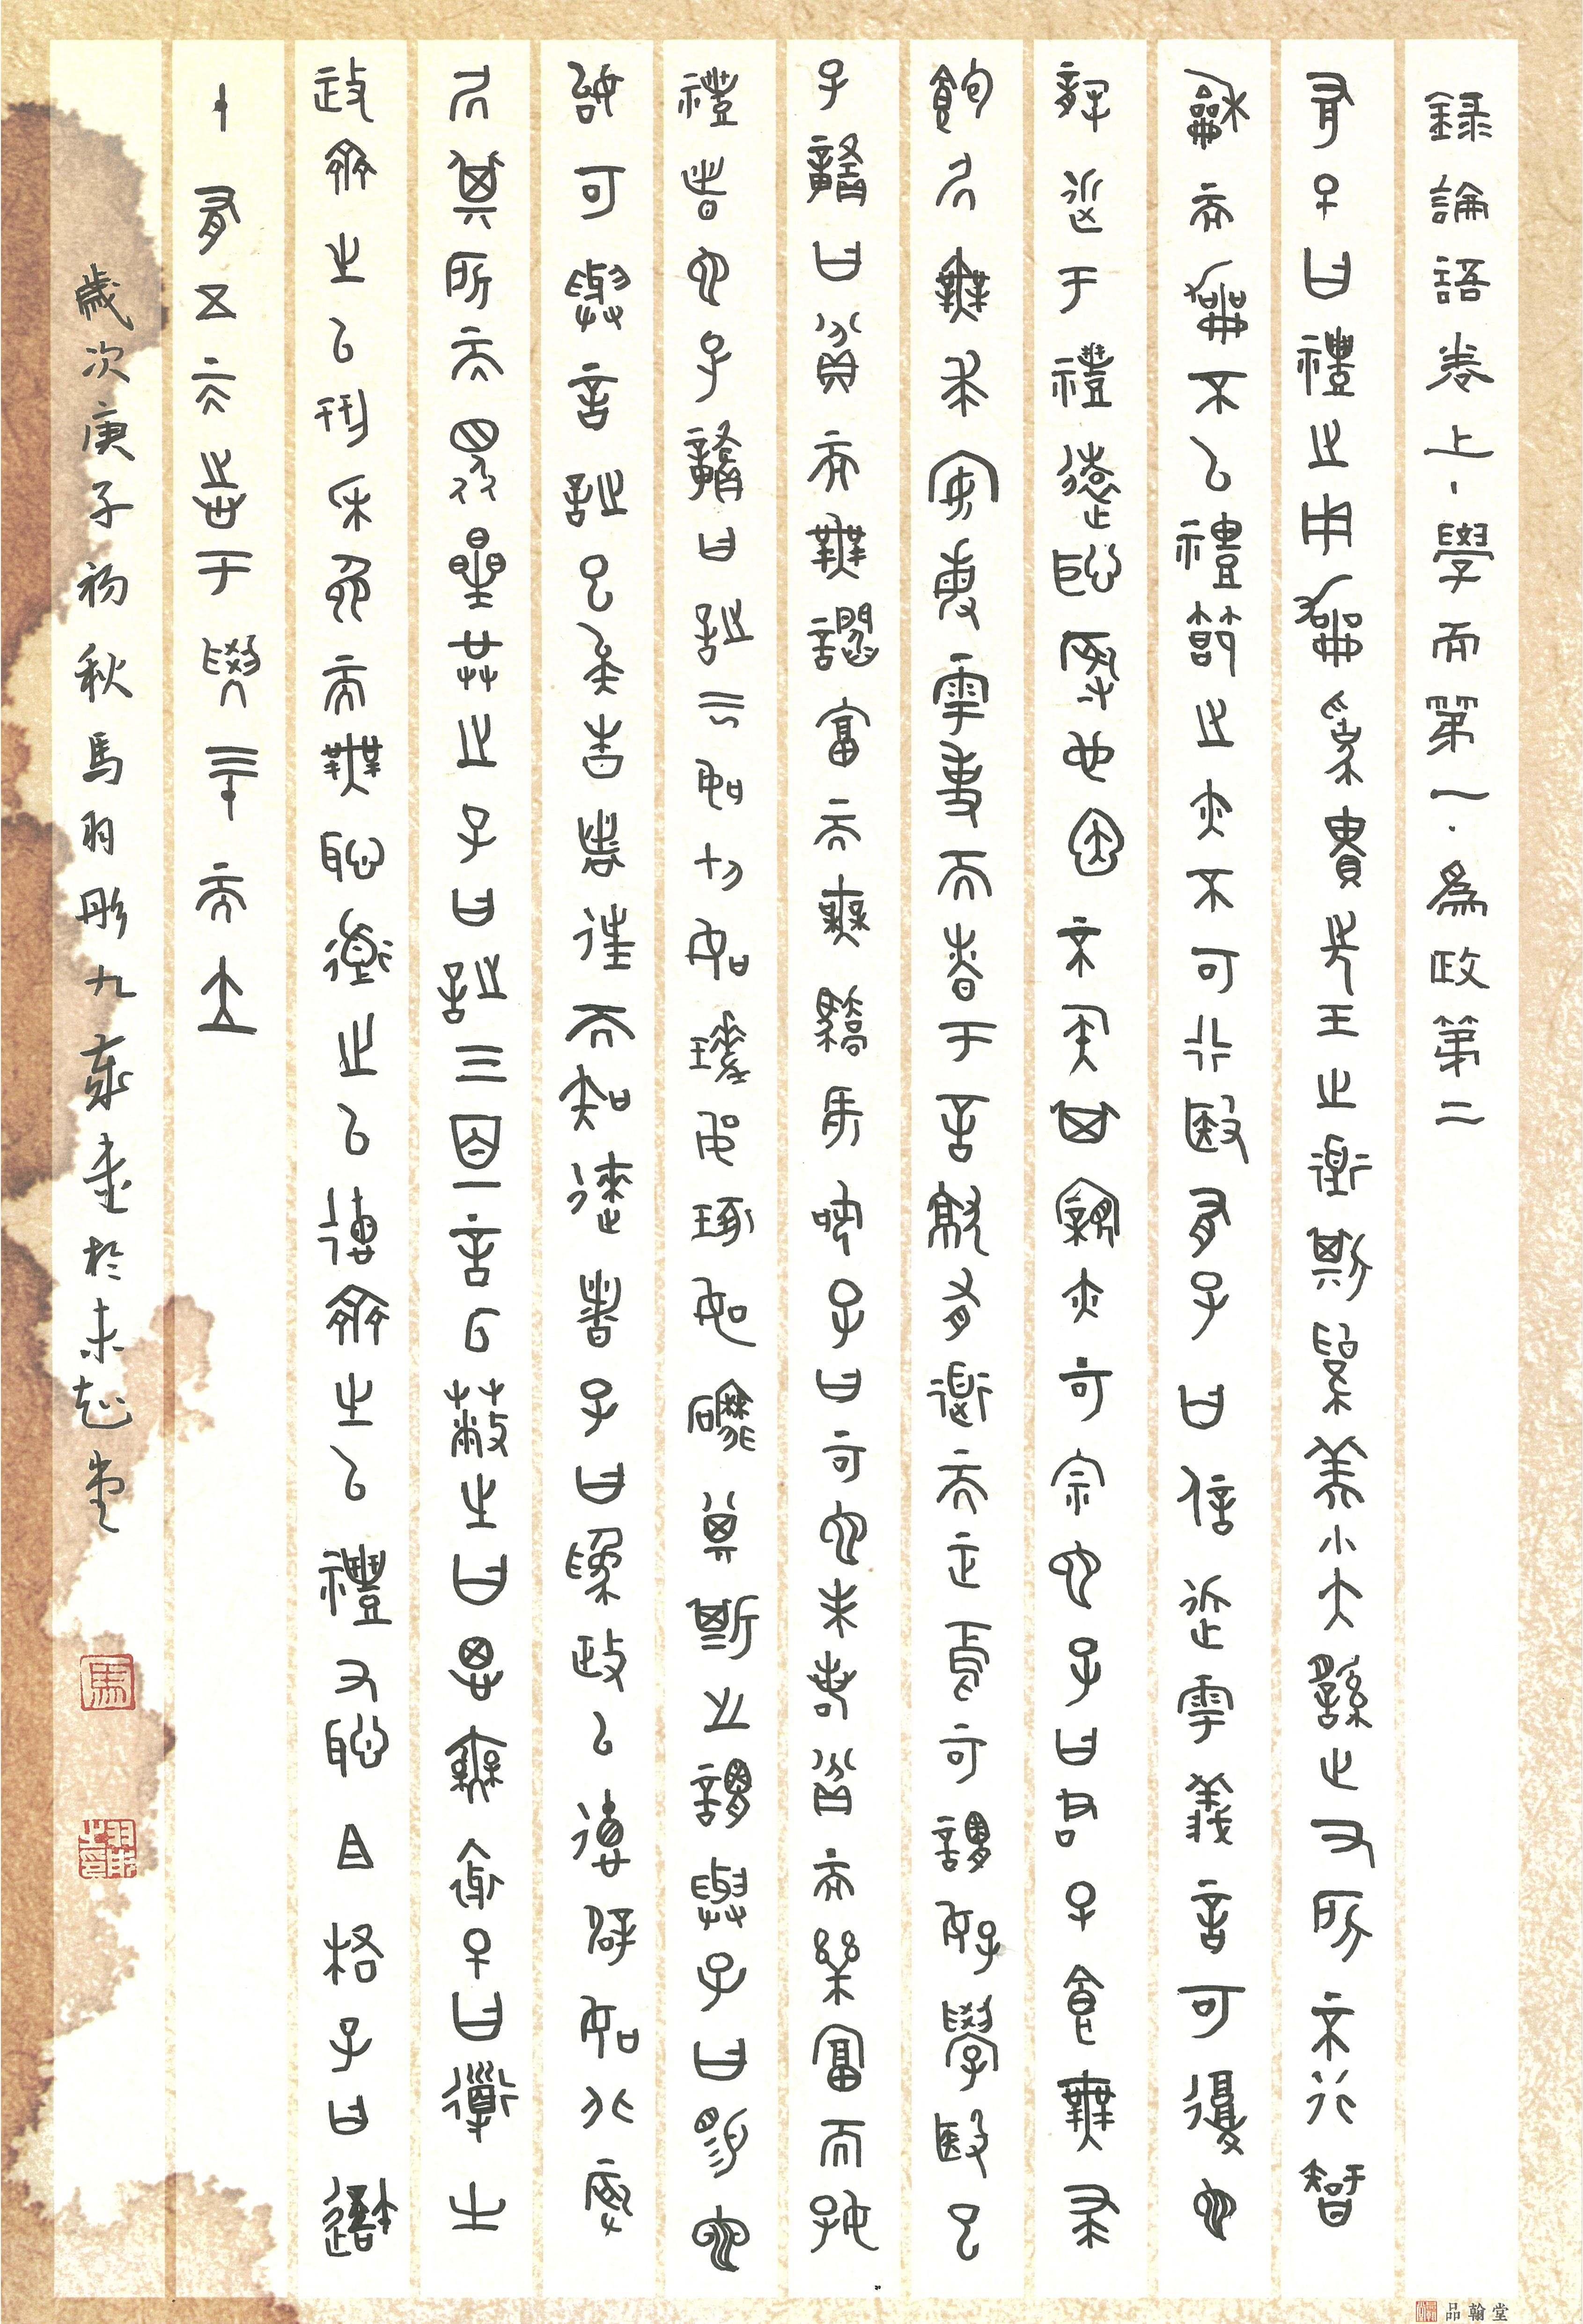 錄論語卷上·學而第一·為政第二
有子曰禮之用龢為貴先王之道斯為美小大繇之有所不行知
龢而龢不以禮節之亦不可行也有子曰信近雩義言可復也
恭近于禮遠恥辱也因不失其親亦可宗也子曰君子食無求
飽而無求安敏雩事而慎于言就有道而正焉可謂好學也已
子貢曰貧而無諂富而無驕何如子曰可也未若貧而樂富而好
禮者也子貢曰詩云如切如磋如琢如磨其斯之謂與子曰賜也
始可與言詩已矣告諸往而知來者子曰為政以德譬如北辰
而其所而眾星共之子曰詩三百一言以蔽之曰思無邪子曰道之
政齊之以刑民免而無恥道之以德齊之以禮有恥且格子曰吾
十有五而志于學三十而立
歲次庚子初秋馬羽彤九歲書於未起堂
馬
品翰堂